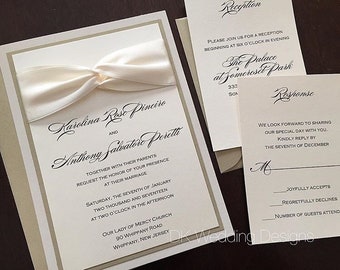 Karolina Rose Pineiro
AND
Anthony Salvatore Poretti
TOGETHER WITH THEIR PARENTS
REQUEST THE HONOR OF YOUR PRESENCE
AT THEIR MARRIAGE
SATURDAY, THE SEVENTH OF JANUARY
TWO THOUSAND AND SEVENTEEN
AT ONE O'CLOCK IN THE AFTERNOON
OUR LADY OF MERCY CHURCH
90 WHIPPANY ROAD
WHIPPANY, NEW JERSEY
Reception
PLEASE JOIN US FOR A RECEPTION
BEGINNING AT SIX O'CLOCK IN THE EVENING
The Palace
at Somerset Park
333
SOM
Response
WE LOOK FORWARD TO SHARING
OUR SPECIAL DAY WITH YOU.
KINDLY REPLY BY
THE SEVENTH OF DECEMBER
M
JOYFULLY ACCEPTS
REGRETFULLY DECLINES
NUMBER OF GUESTS ATTENDING
DK Wedding Designs